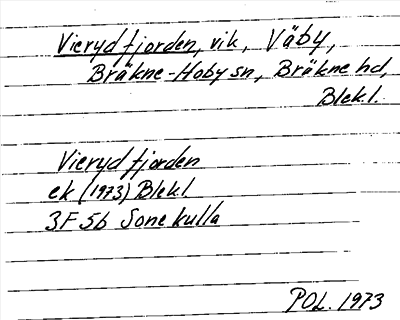 Vierydfjorden, vik, Väby,
Bräkne-Hoby sn, Bräkne hd,
Blek.l.
Vierydfjorden
ek (1973) Blek.l
3F 5b Sonekulla
POL. 1973